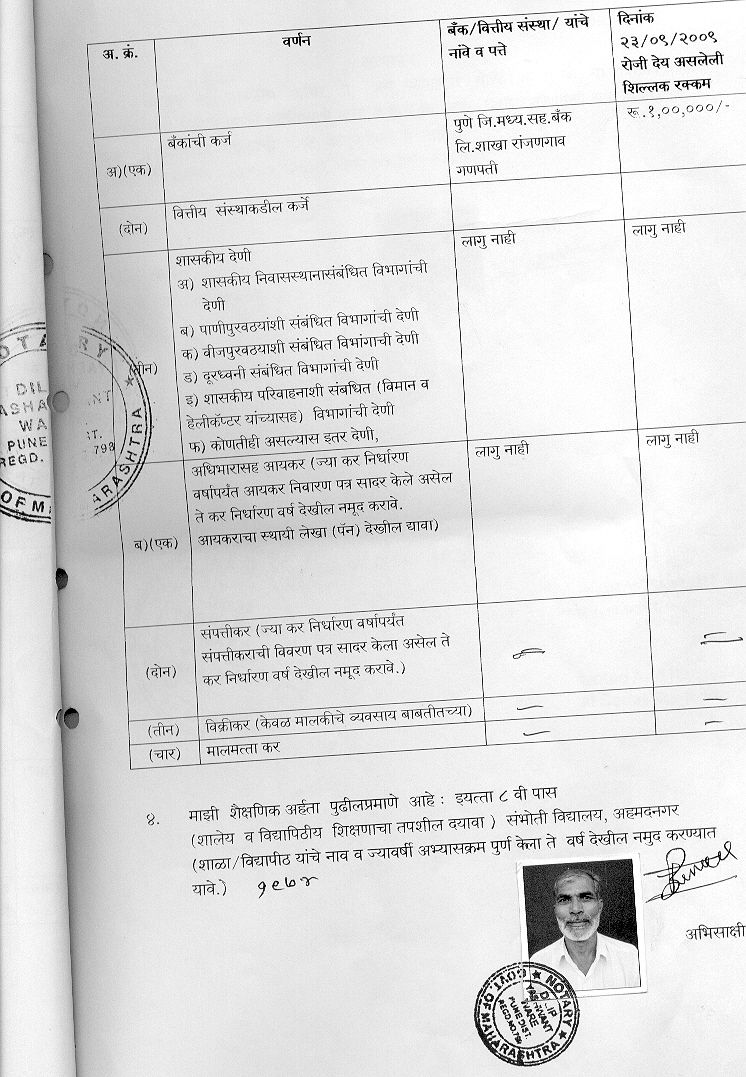 अ. क्रं.
वर्णन
बँक/वित्तीय संस्था/ यांचे
नांवे व पत्ते
दिनांक
२३/०९/२००९
रोजी देय असलेली
शिल्लक रक्कम
अ)(एक)
बँकांची कर्ज
पुणे जि.मध्य.सह.बँक
लि.शाखा रांजणगाव
गणपती
रू.१,००,०००/-
(दोन)
वित्तीय संस्थाकडील कर्जे
(तीन)
शासकीय देणी
अ) शासकीय निवासस्थानासंबंधित विभागांची
देणी
ब) पाणीपुरवठयांशी संबंधित विभागांची देणी
क) वीजपुरवठयाशी संबंधित विभांगाची देणी
ड) दूरध्वनी संबंधित विभागांची देणी
इ) शासकीय परिवाहनाशी संबंधित (विमान व
हेलीकॅप्टर यांच्यासह) विभागांची देणी
फ) कोणतीही असल्यास इतर देणी,
लागु नाही
लागु नाही
ब)(एक)
अधिभारासह आयकर (ज्या कर निर्धारण
वर्षापर्यंत आयकर निवारण पत्र सादर केले असेल
ते कर निर्धारण वर्ष देखील नमूद करावे.
आयकराचा स्थायी लेखा (पॅन) देखील द्यावा)
लागु नाही
लागु नाही
(दोन)
संपत्तीकर (ज्या कर निर्धारण वर्षापर्यंत
संपत्तीकराची विवरण पत्र सादर केला असेल ते
कर निर्धारण वर्ष देखील नमूद करावे.)
(तीन)
विक्रीकर (केवळ मालकीचे व्यवसाय बाबतीतच्या)
(चार)
मालमत्ता कर
४. माझी शैक्षणिक अर्हता पुढीलप्रमाणे आहे : इयत्ता ८ वी पास
(शालेय व विद्यापिठीय शिक्षणाचा तपशील दयावा ) संभोती विद्यालय, अहमदनगर
(शाळा/विद्यापीठ यांचे नाव व ज्यावर्षी अभ्यासक्रम पुर्ण केला ते वर्ष देखील नमुद करण्यात
यावे.) १९७४
अभिसाक्षी
NOTARY
DILIP
YASHWANT
WARE
PUNE DIST.
REGD.NO.798
GOVT. OF MAHARASHTRA
OTARY
DIL
ASHA
WA
PUNE
REGD.
OF M
NT
ST.
798
ARASHTRA